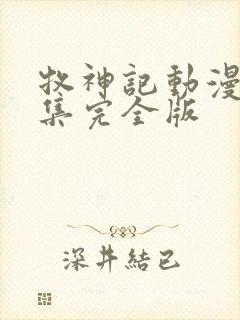 牧神記動漫
集完全版
深井結已